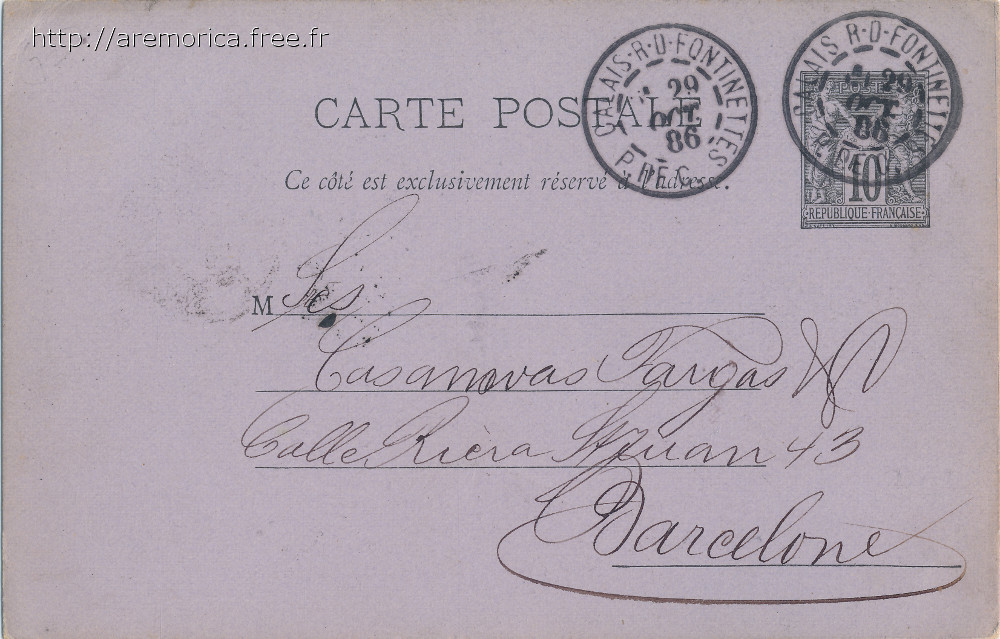 http://aremorica.free.fr
CALAIS-R-D-FONTINETTES
29
OCT
86
P. DE C.
CALAIS R-D-FONTINETTES
29
OCT
86
P. DE C.
POSTES
10
REPUBLIQUE FRANÇAISE
CARTE POSTALE
Ce côté est exclusivement réservé à l'adresse.
M Srs
Casanovas Vargas & Cº
Calle Riera St Juan 43
Barcelone